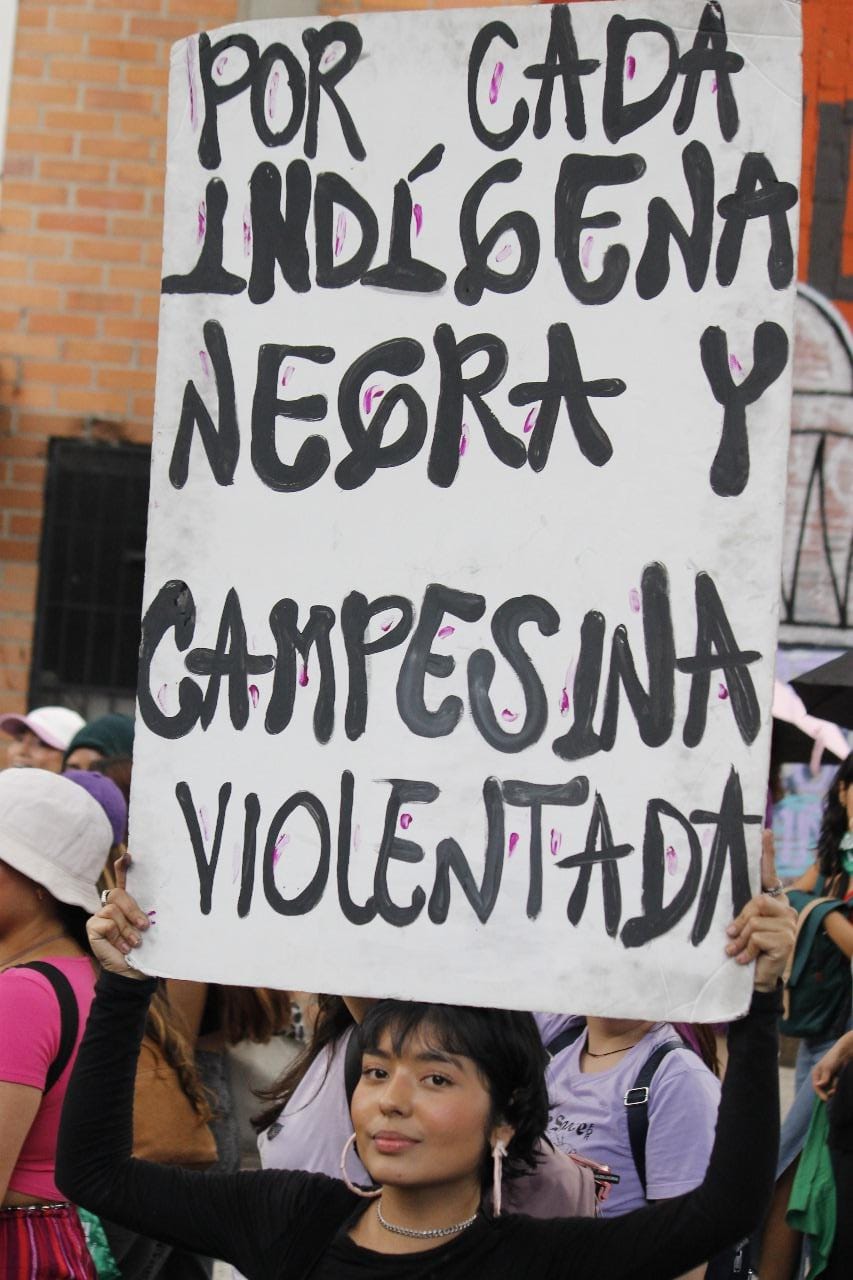 POR CADA
INDÍGENA
NEGRA Y
CAMPESINA
VIOLENTADA